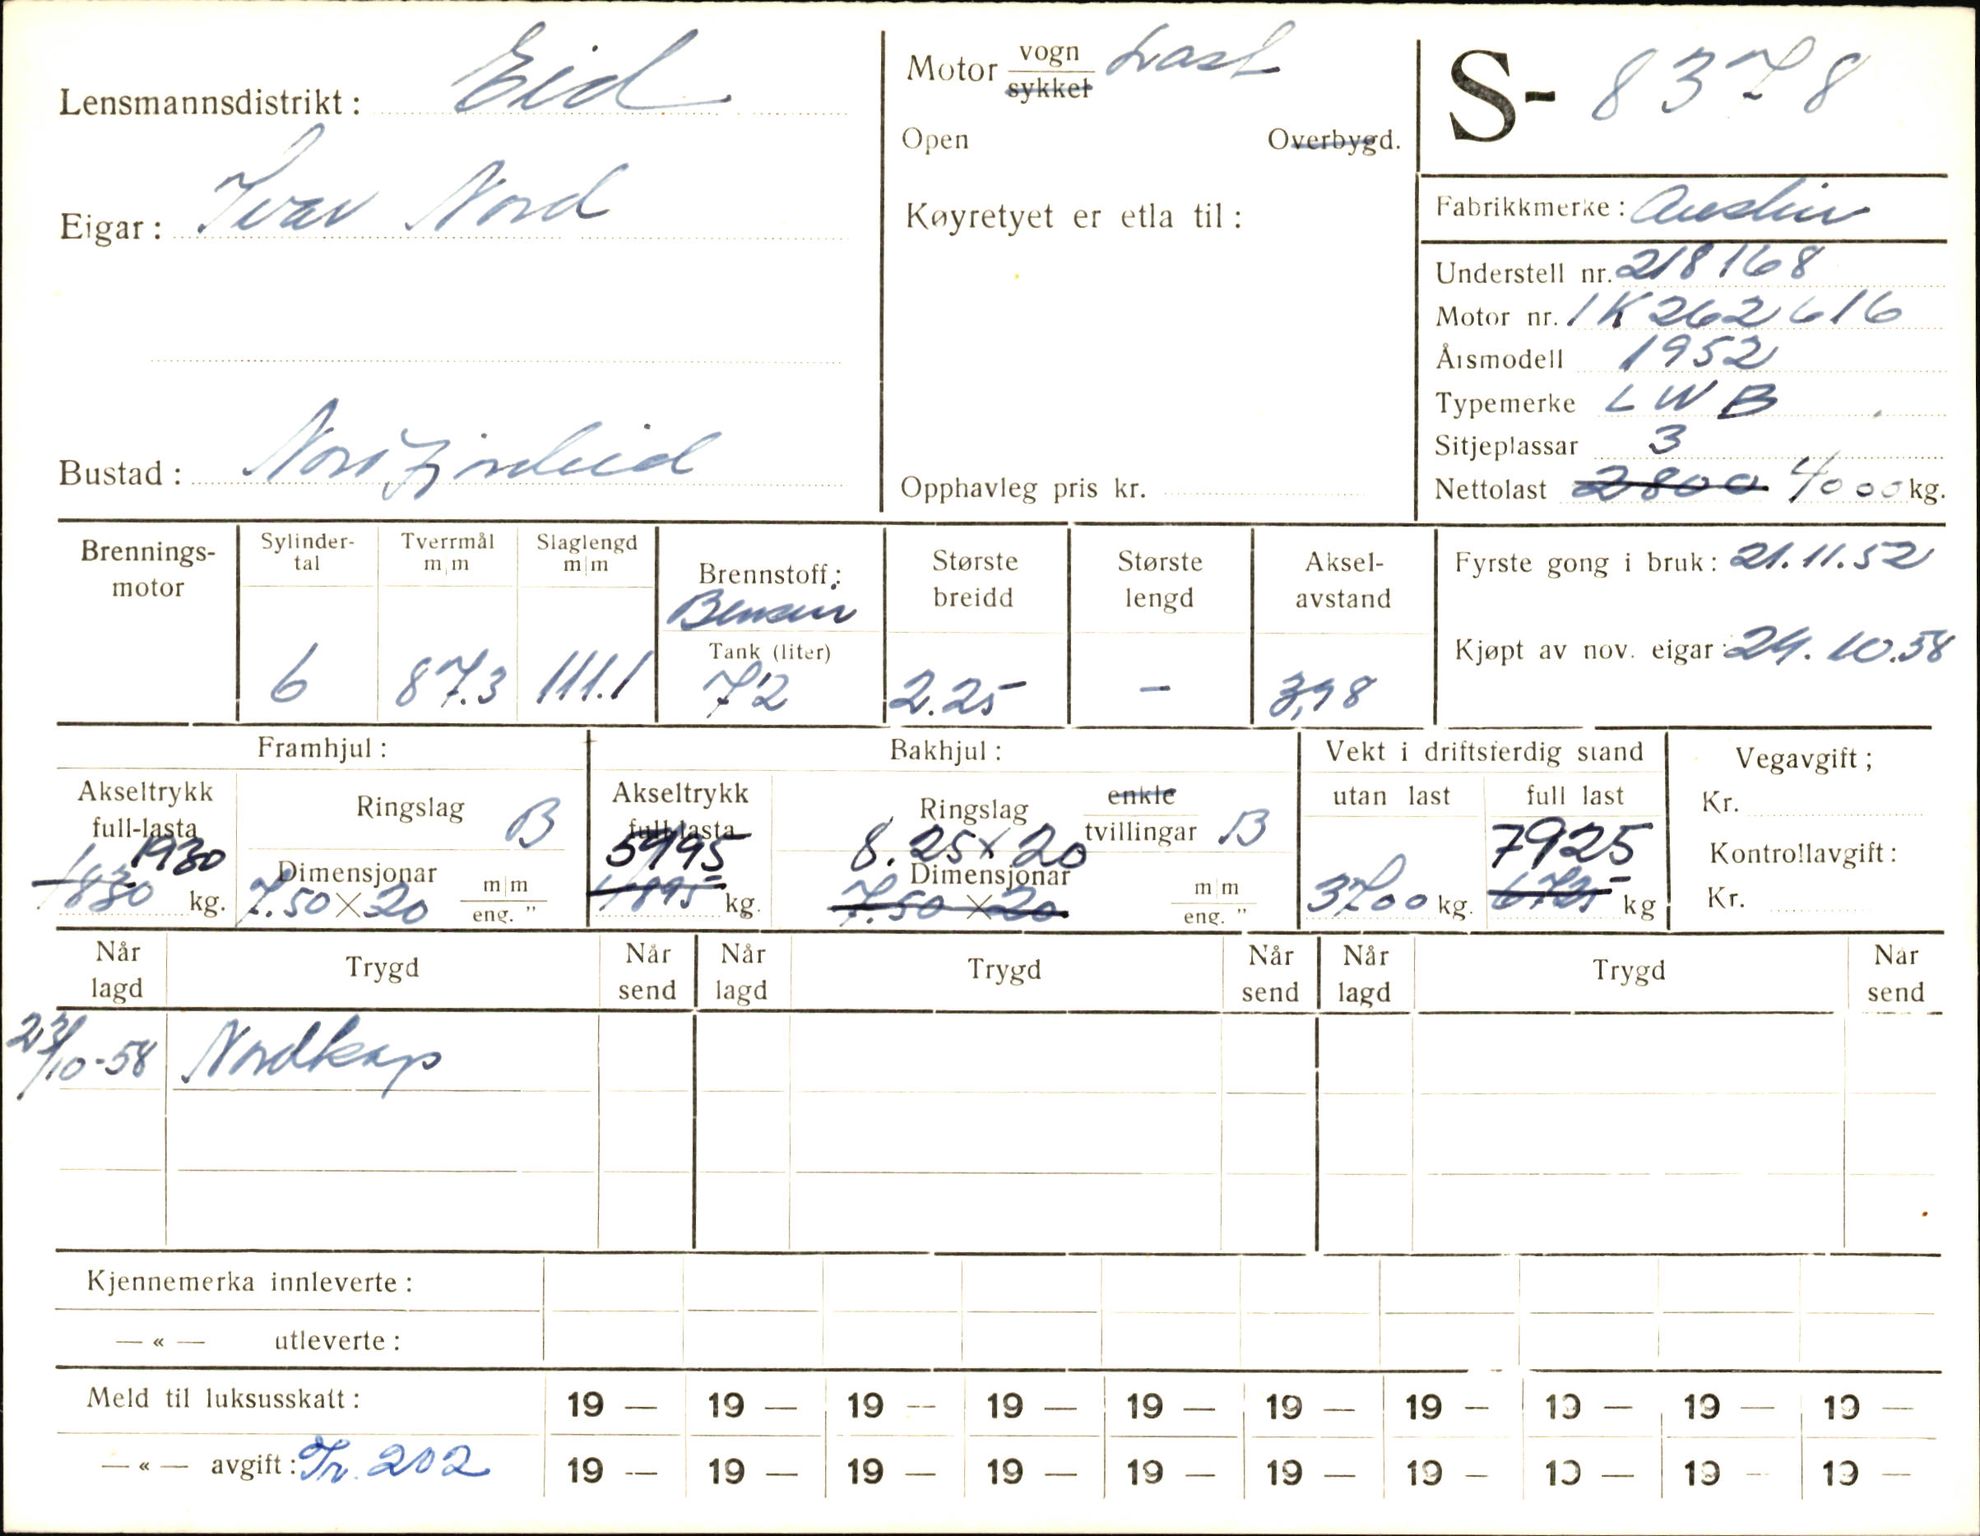 Lensmannsdistrikt: Eid
Eigar: Ivar Nord
Bustad: Nordfjordeid
Motor vogn Last
sykkel
Open Overbygd.
Køyretyet er etla til:
Opphavleg pris kr.
S- 8378
Fabrikkmerke: Austin
Understell nr. 218168
Motor nr. 1K262616
Årsmodell 1952
Typemerke LWB
Sitjeplassar 3
Nettolast 2800 4000 kg.
Brennings-
motor
Sylinder-
tal
6
Tverrmål
m/m
87.3
Slaglengd
m/m
111.1
Brennstoff:
Bensin
Tank (liter)
72
Største
breidd
2.25
Største
lengd
—
Aksel-
avstand
3,98
Fyrste gong i bruk: 21.11.52
Kjøpt av nov. eigar: 24.10.58
Framhjul:
Akseltrykk
full-lasta
1930
1830 kg.
Ringslag B
Dimensjonar
7.50 × 20 m/m
eng. "
Bakhjul:
Akseltrykk
full-lasta
5995
4895 kg.
Ringslag enkle
tvillingar B
8.25 × 20
Dimensjonar
7.50 × 20 m/m
eng. "
Vekt i driftsferdig stand
utan last
3700 kg.
full last
7925
6725 kg
Vegavgift;
Kr.
Kontrollavgift:
Kr.
Når
lagd Trygd Når
send Når
lagd Trygd Når
send Når
lagd Trygd Når
send
23/10-58 Nordkap
Kjennemerka innleverte:
— « — utleverte:
Meld til luksusskatt: 19 — 19 — 19 — 19 — 19 — 19 — 19 — 19 — 19 — 19 —
— « — avgift: Tr. 202 19 — 19 — 19 — 19 — 19 — 19 — 19 — 19 — 19 — 19 —